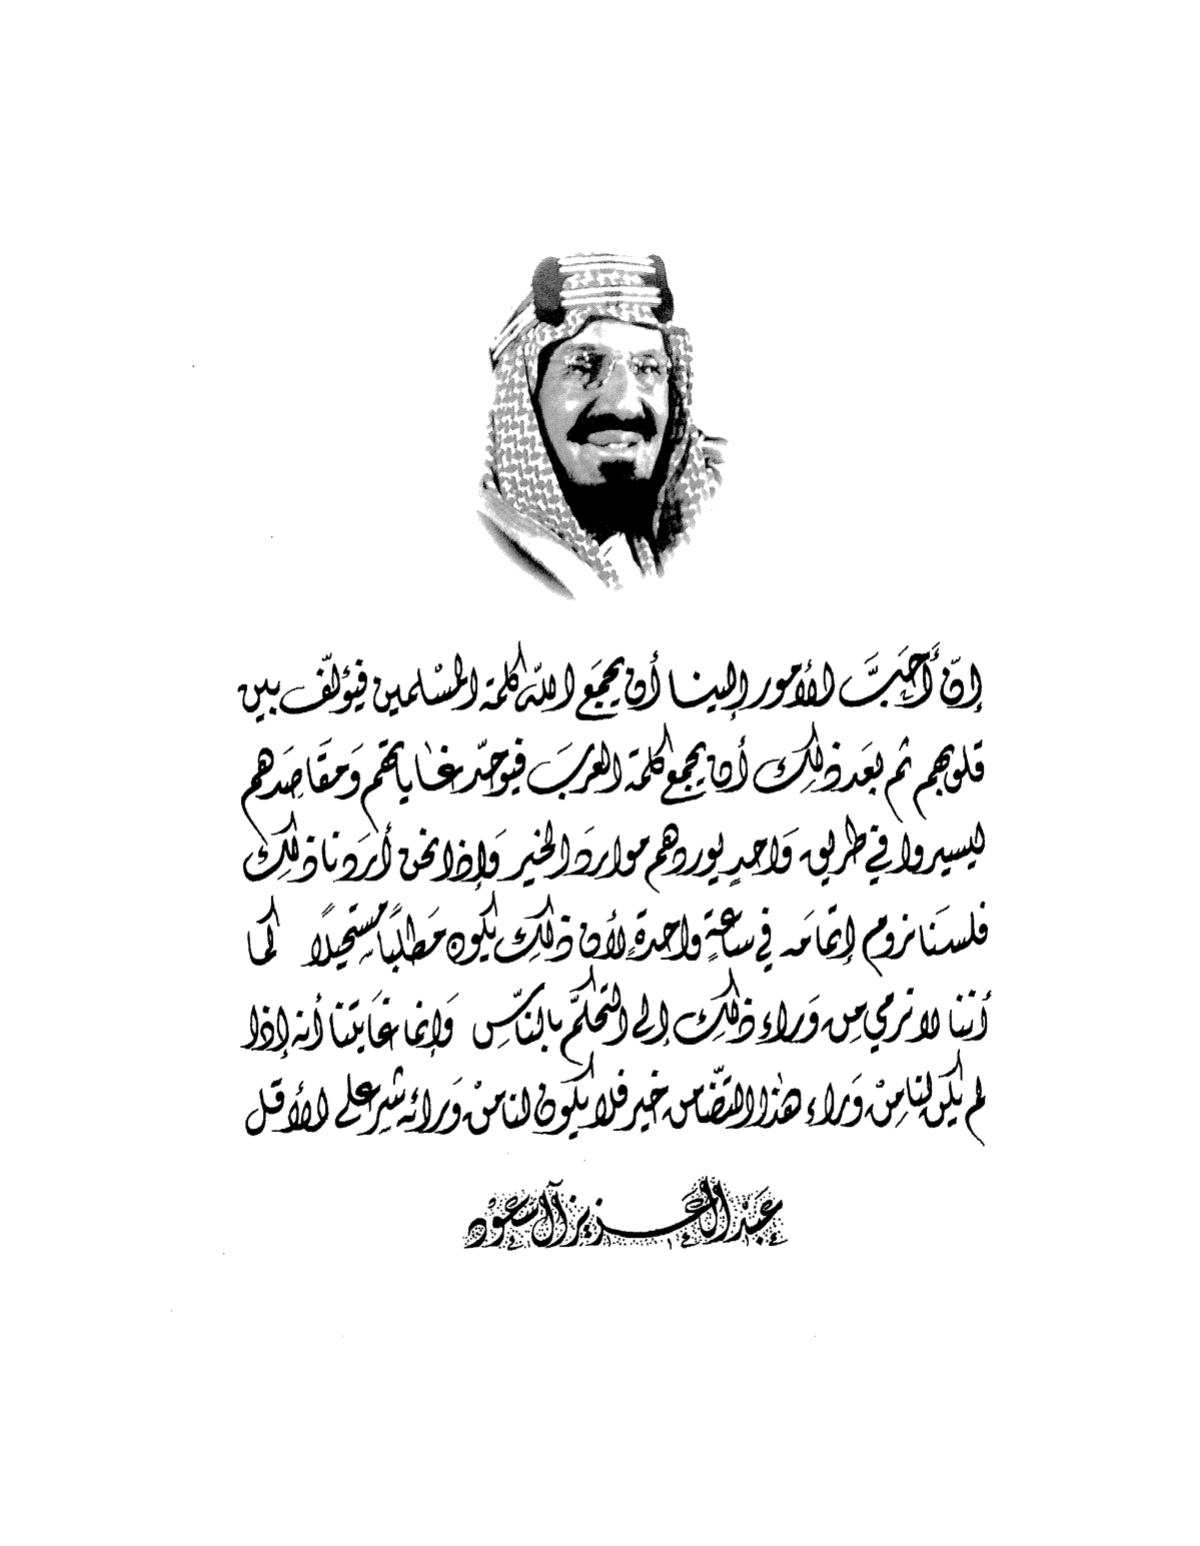 إنّ أَحَبَّ الأمور إلينا أن يجمَع الله كلمة المسْلمين فيؤلّف بين
قلوبهم ثم بعَد ذلك أن يجمع كلمة العربَ فيوحّد غاياتهم وَمقَاصِدهم
ليسيروا في طريق وَاحدٍ يوردهم مواردَ الخير وَإذا نحن أردنا ذلك
فلسنَا نروم إتمامَه في ساعةٍ واحدةٍ لأن ذلك يكون مَطلبًا مستحيلًا كما
أننا لا نرمي مِن وَراء ذلك إلى التحكّم بالناسِ وَإنما غايتنا أنه إذا
لم يكن لنا مِنْ وَراء هٰذا التضّامن خير فلا يكون لنا منْ وَرائه شر على الأقل
عَبْد العَزيز آل سعُود